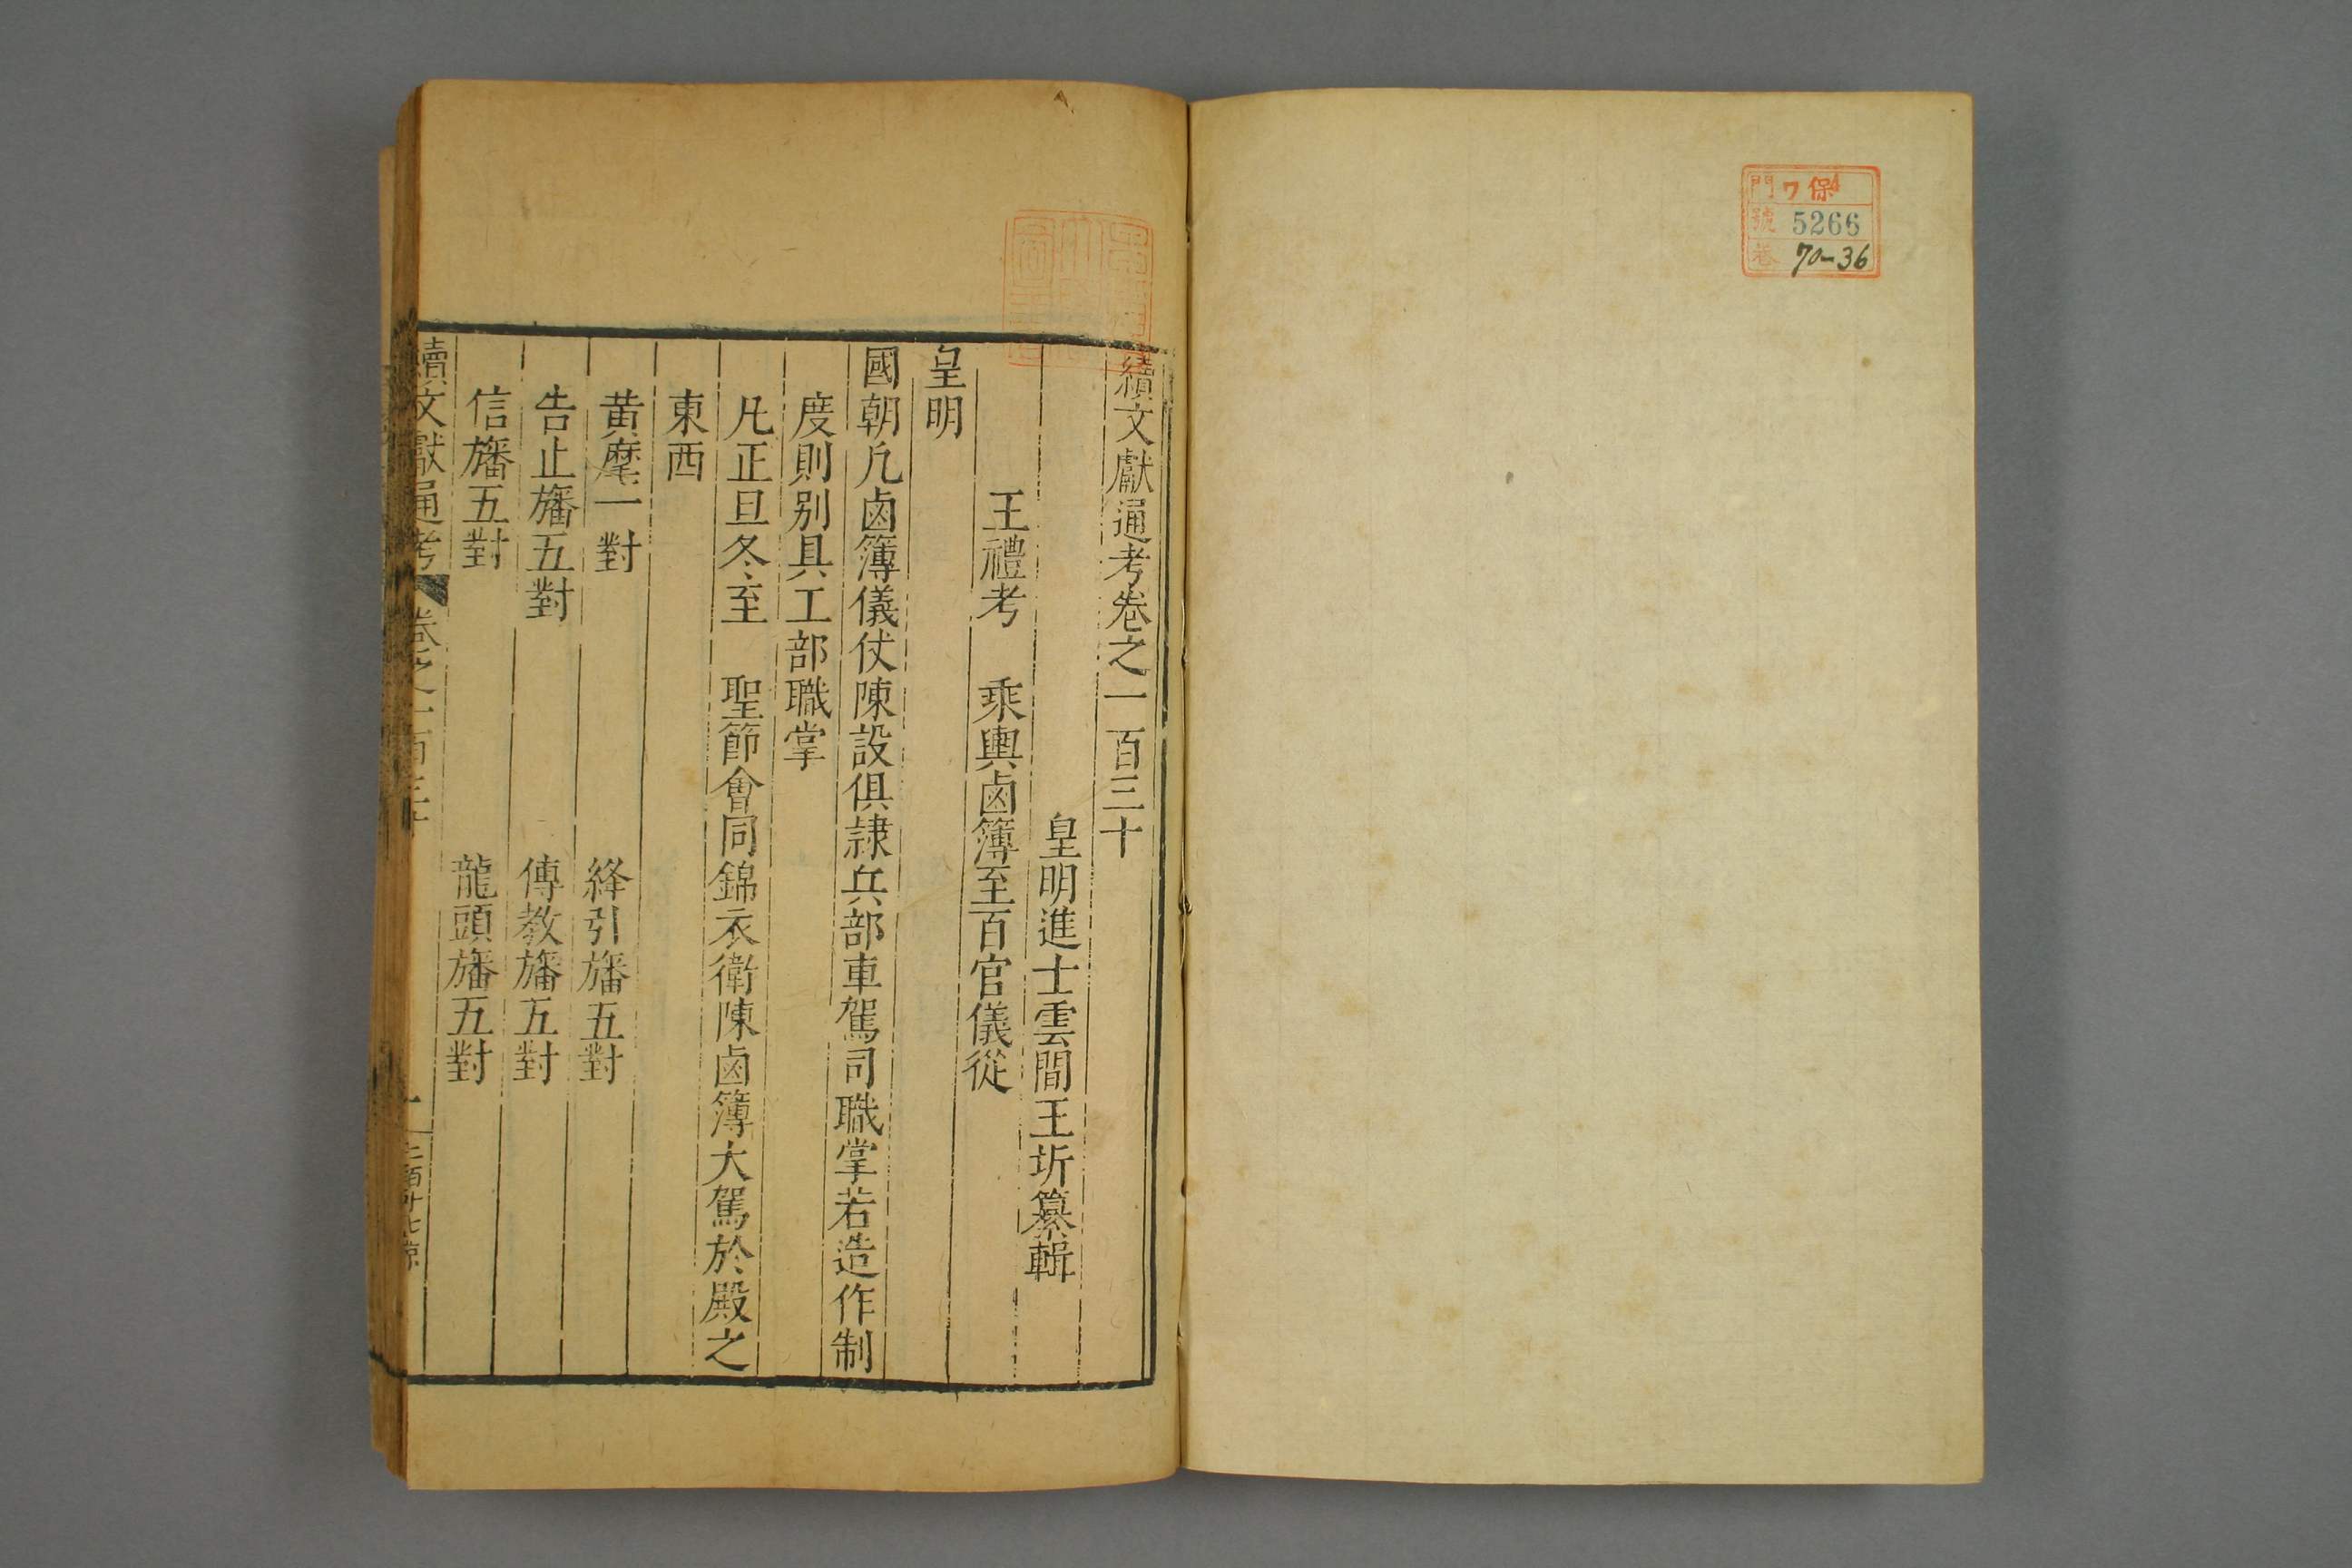 門 ワ 保4
號 5266
巻 70-36
續文獻通考卷之一百三十
皇明進士雲間王圻纂輯
王禮考 乘輿鹵簿至百官儀從
皇明
國朝凡鹵簿儀仗陳設俱隷兵部車駕司職掌若造作制
度則别具工部職掌
凡正旦冬至 聖節會同錦衣衛陳鹵簿大駕於殿之
東西
黄麾一對 絳引旛五對
告止旛五對 傳教旛五對
信旛五對 龍頭旛五對
續文獻通考 卷之一百三十 一